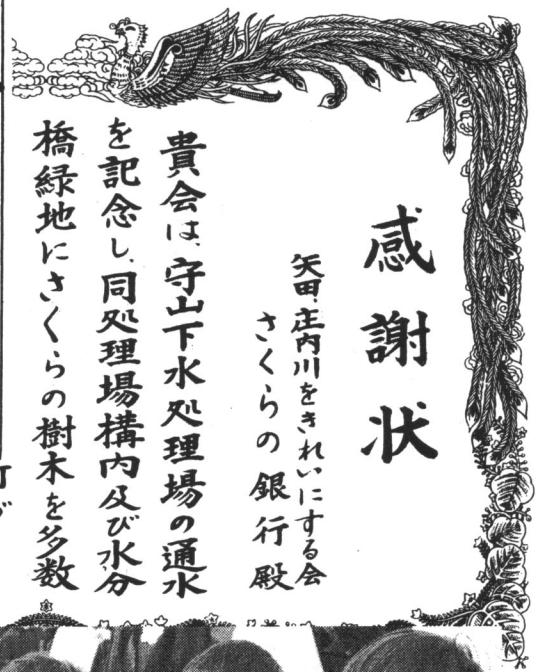 感謝状
矢田、庄内川をきれいにする会
さくらの銀行殿
貴会は、守山下水処理場の通水
を記念し、同処理場構内及び水分
橋緑地にさくらの樹木を多数